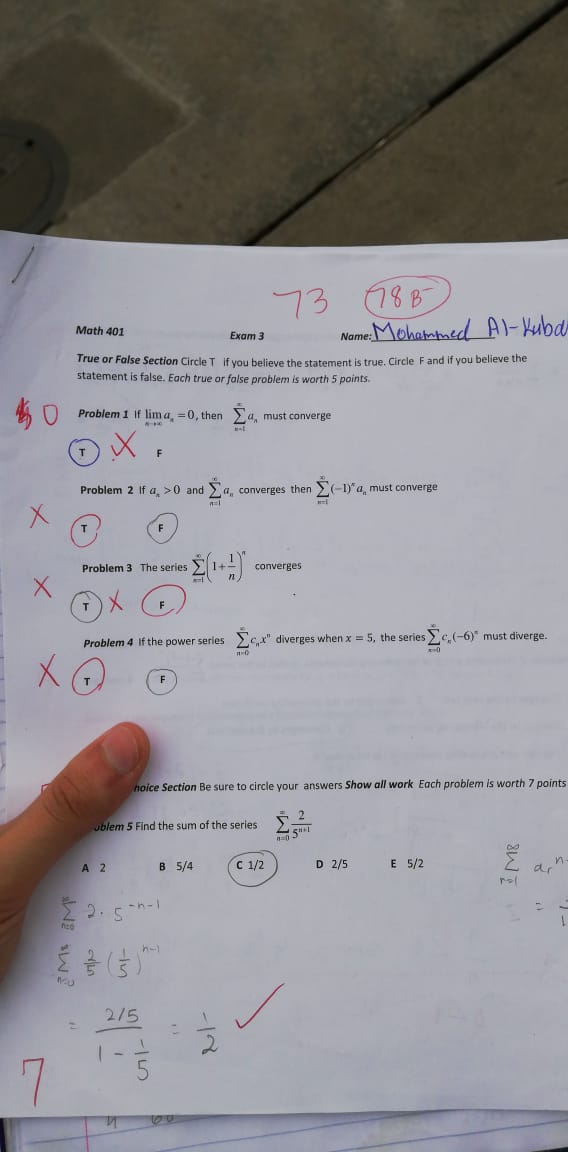 73 78 B-
Math 401 Exam 3 Name: Mohammed Al-Kuba
True or False Section Circle T if you believe the statement is true. Circle F and if you believe the
statement is false. Each true or false problem is worth 5 points.
0 Problem 1 If lim a_n = 0, then ∑ a_n must converge
n→∞ n=1 ∞
T X F
Problem 2 If a_n > 0 and ∑_{n=1}^∞ a_n converges then ∑_{n=1}^∞ (−1)^n a_n must converge
X T F
Problem 3 The series ∑_{n=1}^∞ (1 + 1/n)^n converges
X T X F
Problem 4 If the power series ∑_{n=0}^∞ c_n x^n diverges when x = 5, the series ∑_{n=0}^∞ c_n (−6)^n must diverge.
X T F
hoice Section Be sure to circle your answers Show all work Each problem is worth 7 points
oblem 5 Find the sum of the series ∑_{n=0}^∞ 2/5^{n+1}
A 2 B 5/4 C 1/2 D 2/5 E 5/2
∑_{n=1}^∞ ar^n-
=
∑_{n=0}^∞ 2·5^{-n-1}
∑_{n=0}^∞ 2/5 (1/5)^{n-1}
= (2/5)/(1 - 1/5) = 1/2 ✓
7